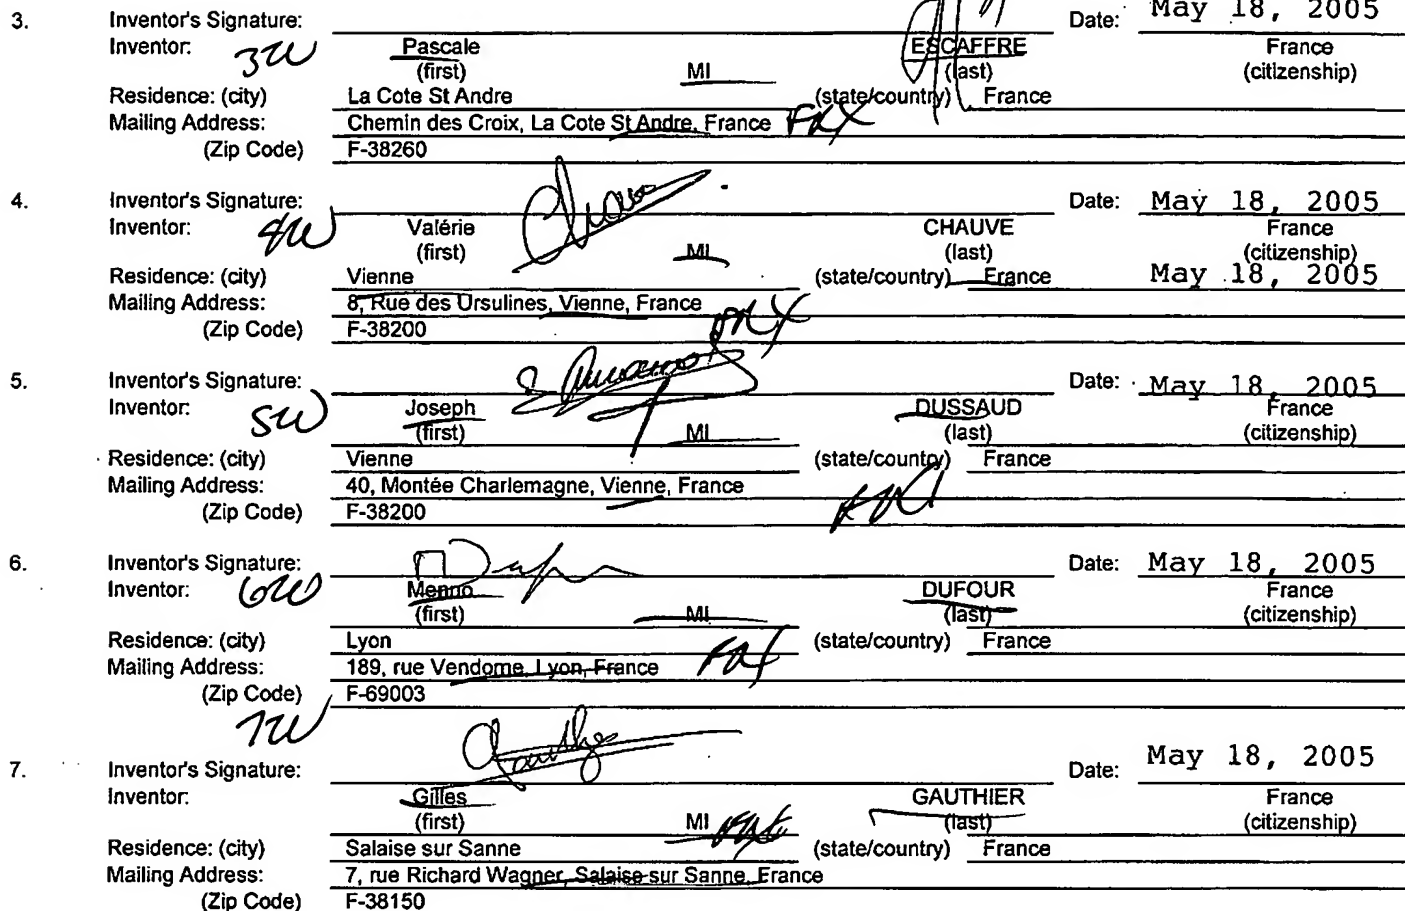 3. Inventor's Signature: Date: May 18, 2005
Inventor: 3W Pascale ESCAFFRE France
(first) MI (last) (citizenship)
Residence: (city) La Cote St Andre (state/country) France
Mailing Address: Chemin des Croix, La Cote St Andre, France FRX
(Zip Code) F-38260
4. Inventor's Signature: Date: May 18, 2005
Inventor: 4W Valérie CHAUVE France
(first) MI (last) (citizenship)
Residence: (city) Vienne (state/country) France May 18, 2005
Mailing Address: 8, Rue des Ursulines, Vienne, France FRX
(Zip Code) F-38200
5. Inventor's Signature: Date: May 18, 2005
Inventor: 5W Joseph DUSSAUD France
(first) MI (last) (citizenship)
Residence: (city) Vienne (state/country) France
Mailing Address: 40, Montée Charlemagne, Vienne, France
(Zip Code) F-38200 FRX
6. Inventor's Signature: Date: May 18, 2005
Inventor: 6W Menno DUFOUR France
(first) MI (last) (citizenship)
Residence: (city) Lyon (state/country) France
Mailing Address: 189, rue Vendome, Lyon, France FRX
(Zip Code) F-69003
7W
7. Inventor's Signature: Gauthier Date: May 18, 2005
Inventor: Gilles GAUTHIER France
(first) MI FRX (last) (citizenship)
Residence: (city) Salaise sur Sanne (state/country) France
Mailing Address: 7, rue Richard Wagner, Salaise sur Sanne, France
(Zip Code) F-38150